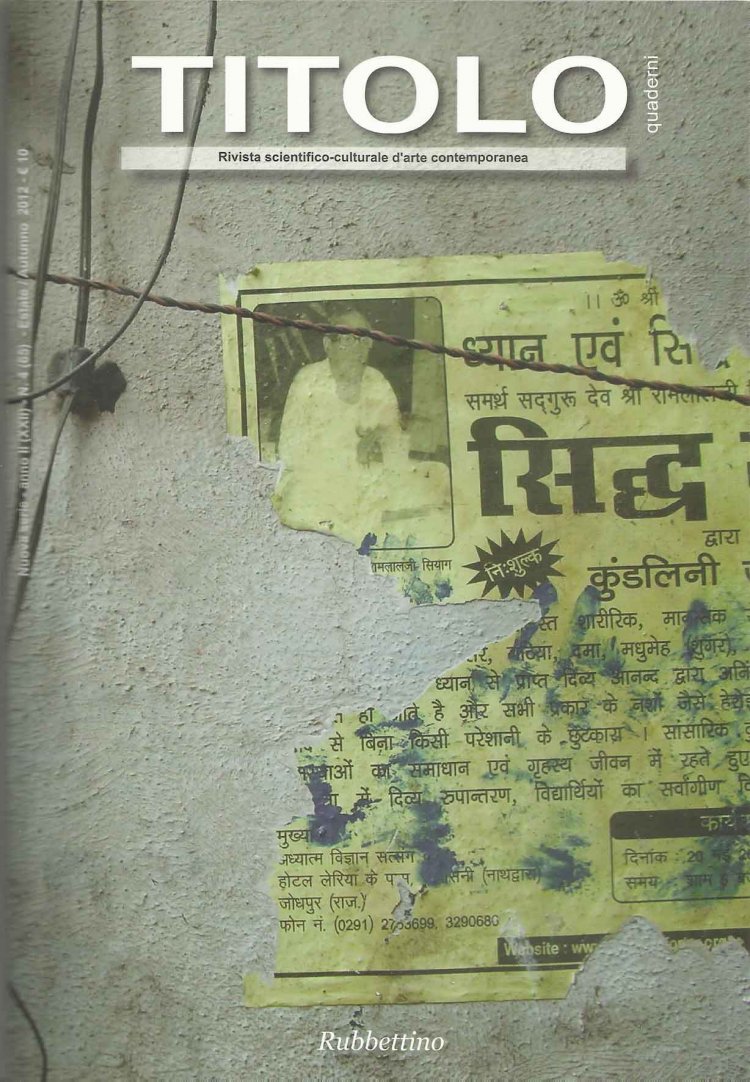 TITOLO
quaderni
Rivista scientifico-culturale d'arte contemporanea
Nuova serie - anno II (XXII) - N. 4 (65) - Estate/Autunno 2012 - € 10
।। ॐ श्री
ध्यान एवं सि
समर्थ सद्गुरू देव श्री रामलालजी
सिद्ध
द्वारा
रामलालजी सियाग
नि:शुल्क
कुंडलिनी
स्त शारीरिक, मानसिक
गठिया, दमा, मधुमेह (शुगर),
ध्यान से प्राप्त दिव्य आनन्द द्वारा अनि
हो जाते है और सभी प्रकार के नशों जैसे हेरोइ
से बिना किसी परेशानी के छुटकारा । सांसारिक
का समाधान एवं गृहस्थ जीवन में रहते हुए
में दिव्य रुपान्तरण, विद्यार्थियों का सर्वांगीण वि
मुख्या
कार्य
अध्यात्म विज्ञान सत्संग
दिनांक : 20 मई 20
होटल लेरिया के पास (नाथद्वारा)
समय : शाम 6 बजे
जोधपुर (राज.)
फोन नं. (0291) 2753699, 3290680
Website : www.
Rubbettino